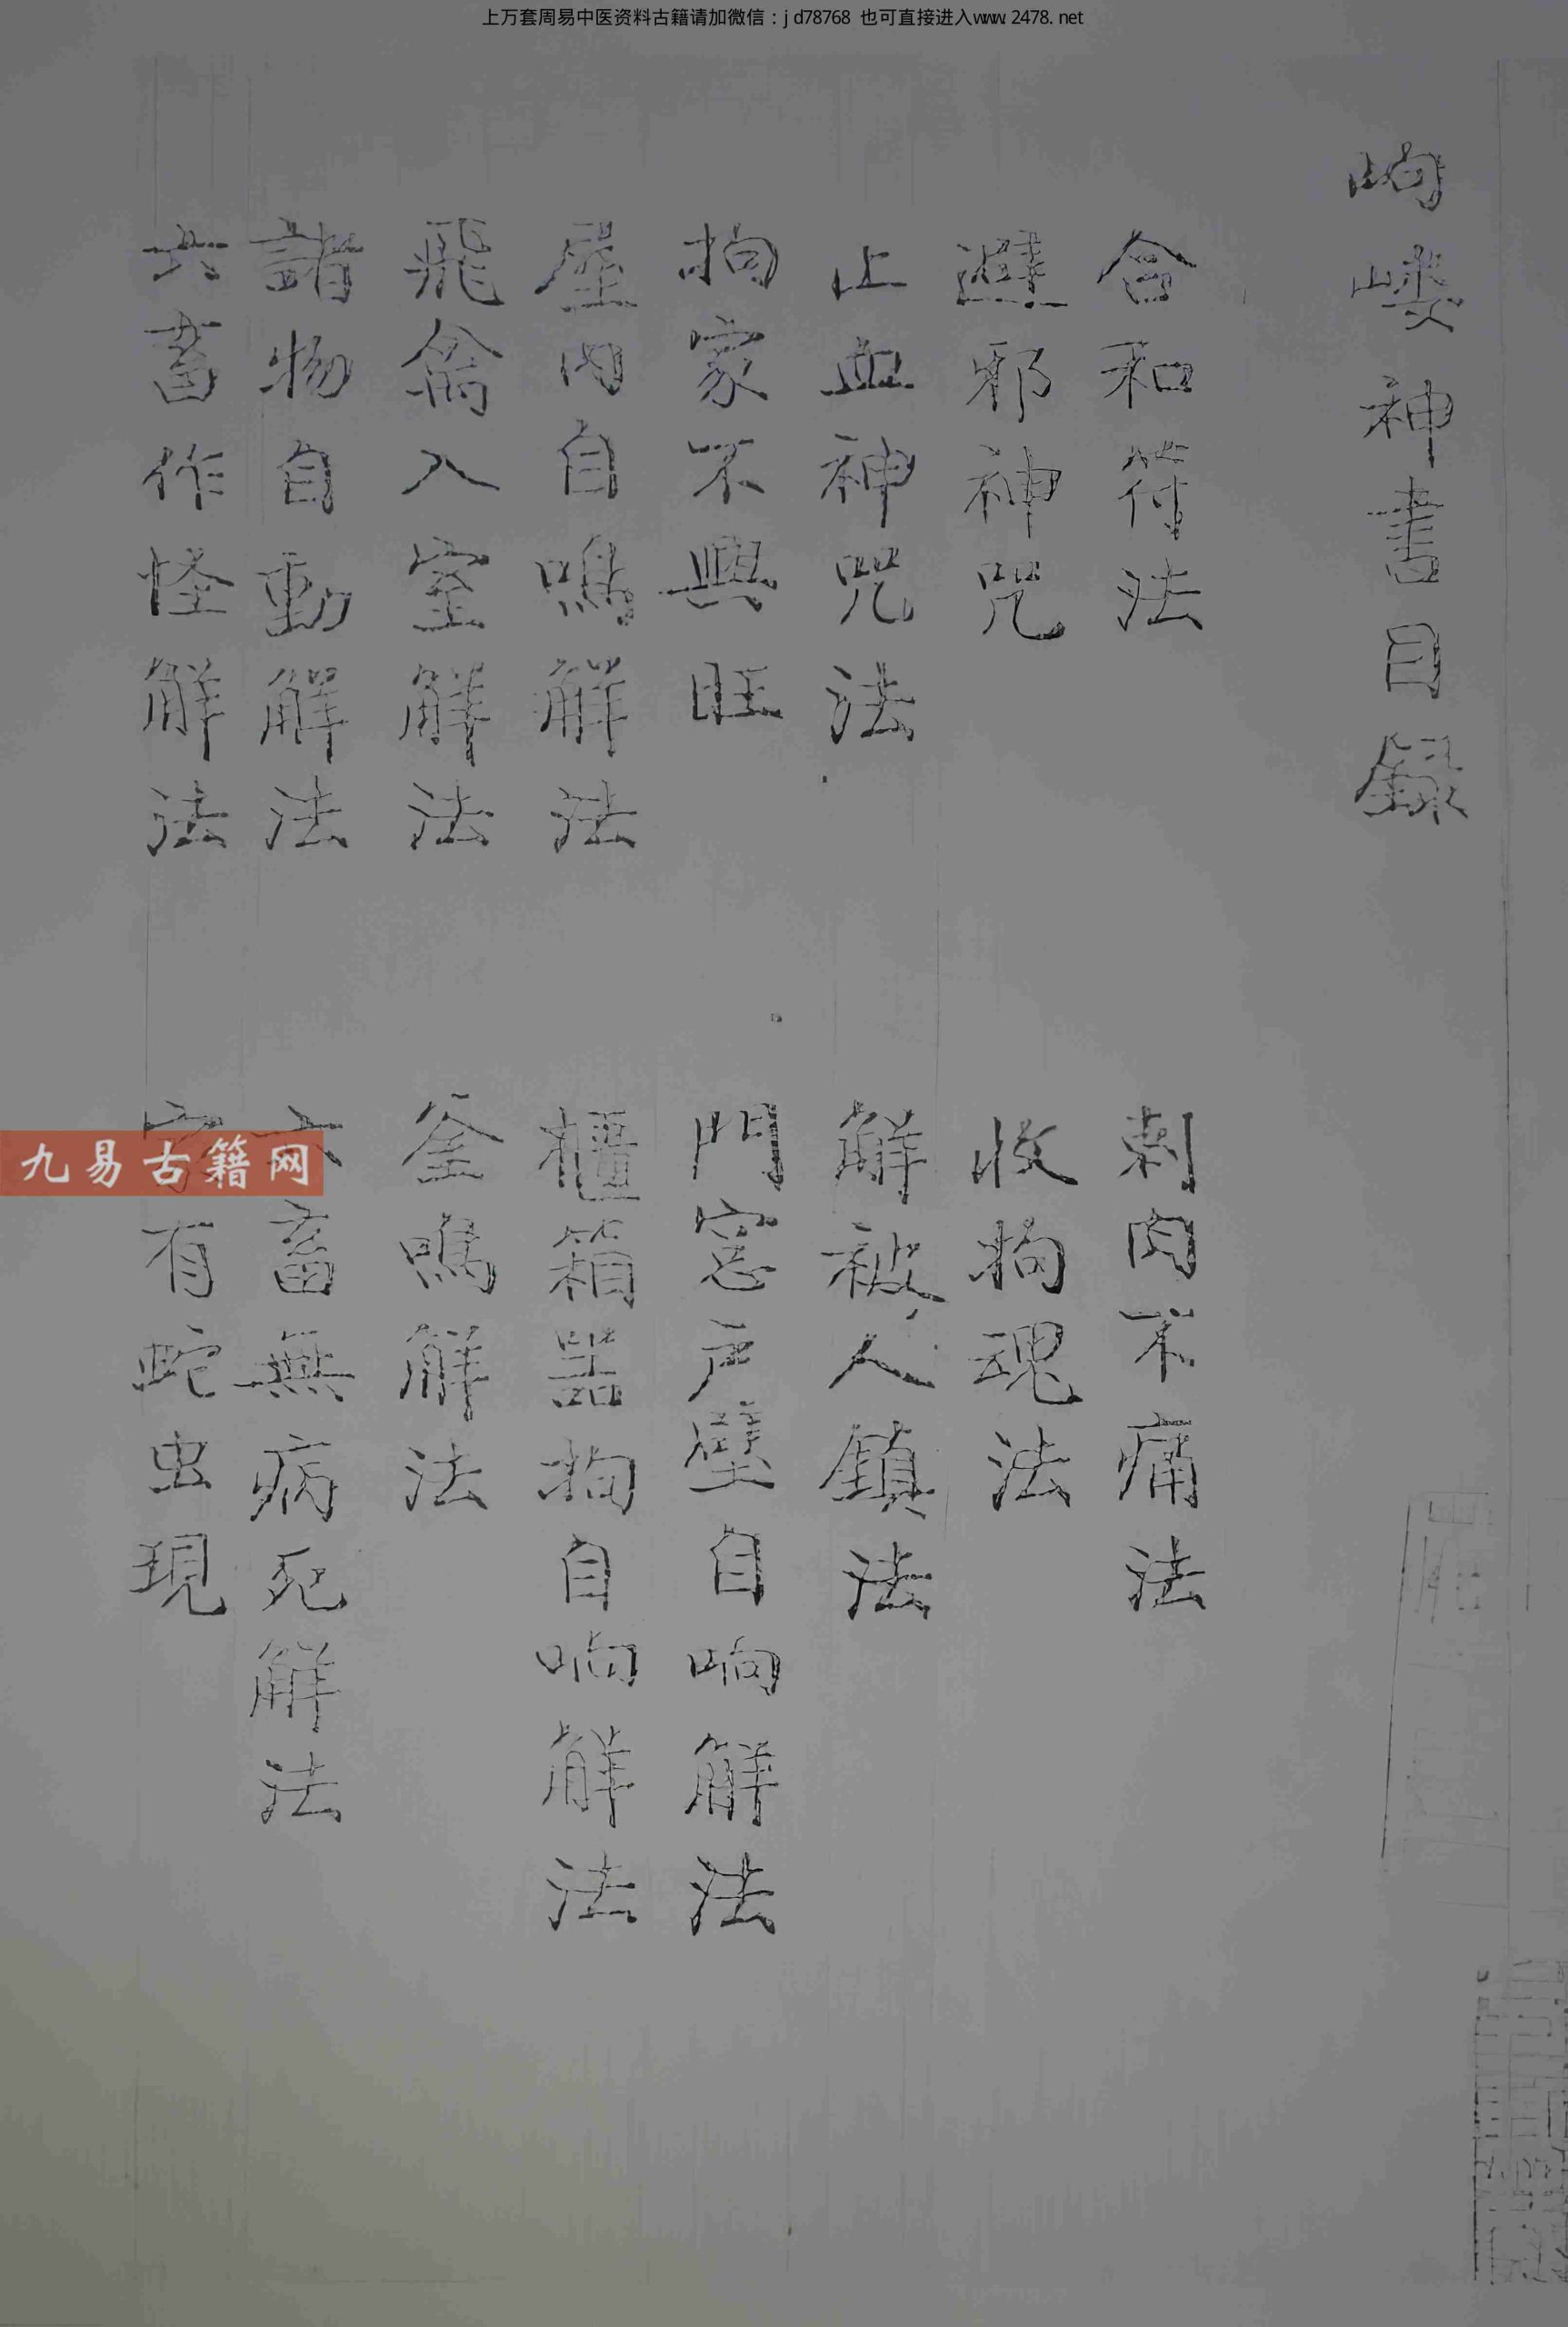 上万套周易中医资料古籍请加微信：jd78768 也可直接进入www.2478.net
岣嶁神書目錄
合和符法
刺肉不痛法
避邪神咒
收拘魂法
止血神咒法
解被人鎮法
拘家不興旺
門窓户壁自响解法
屋内自鳴解法
櫃箱器拘自响解法
飛禽入室解法
釜鳴解法
諸物自動解法
六畜無病死解法
六畜作怪解法
家有蛇虫現
九易古籍网